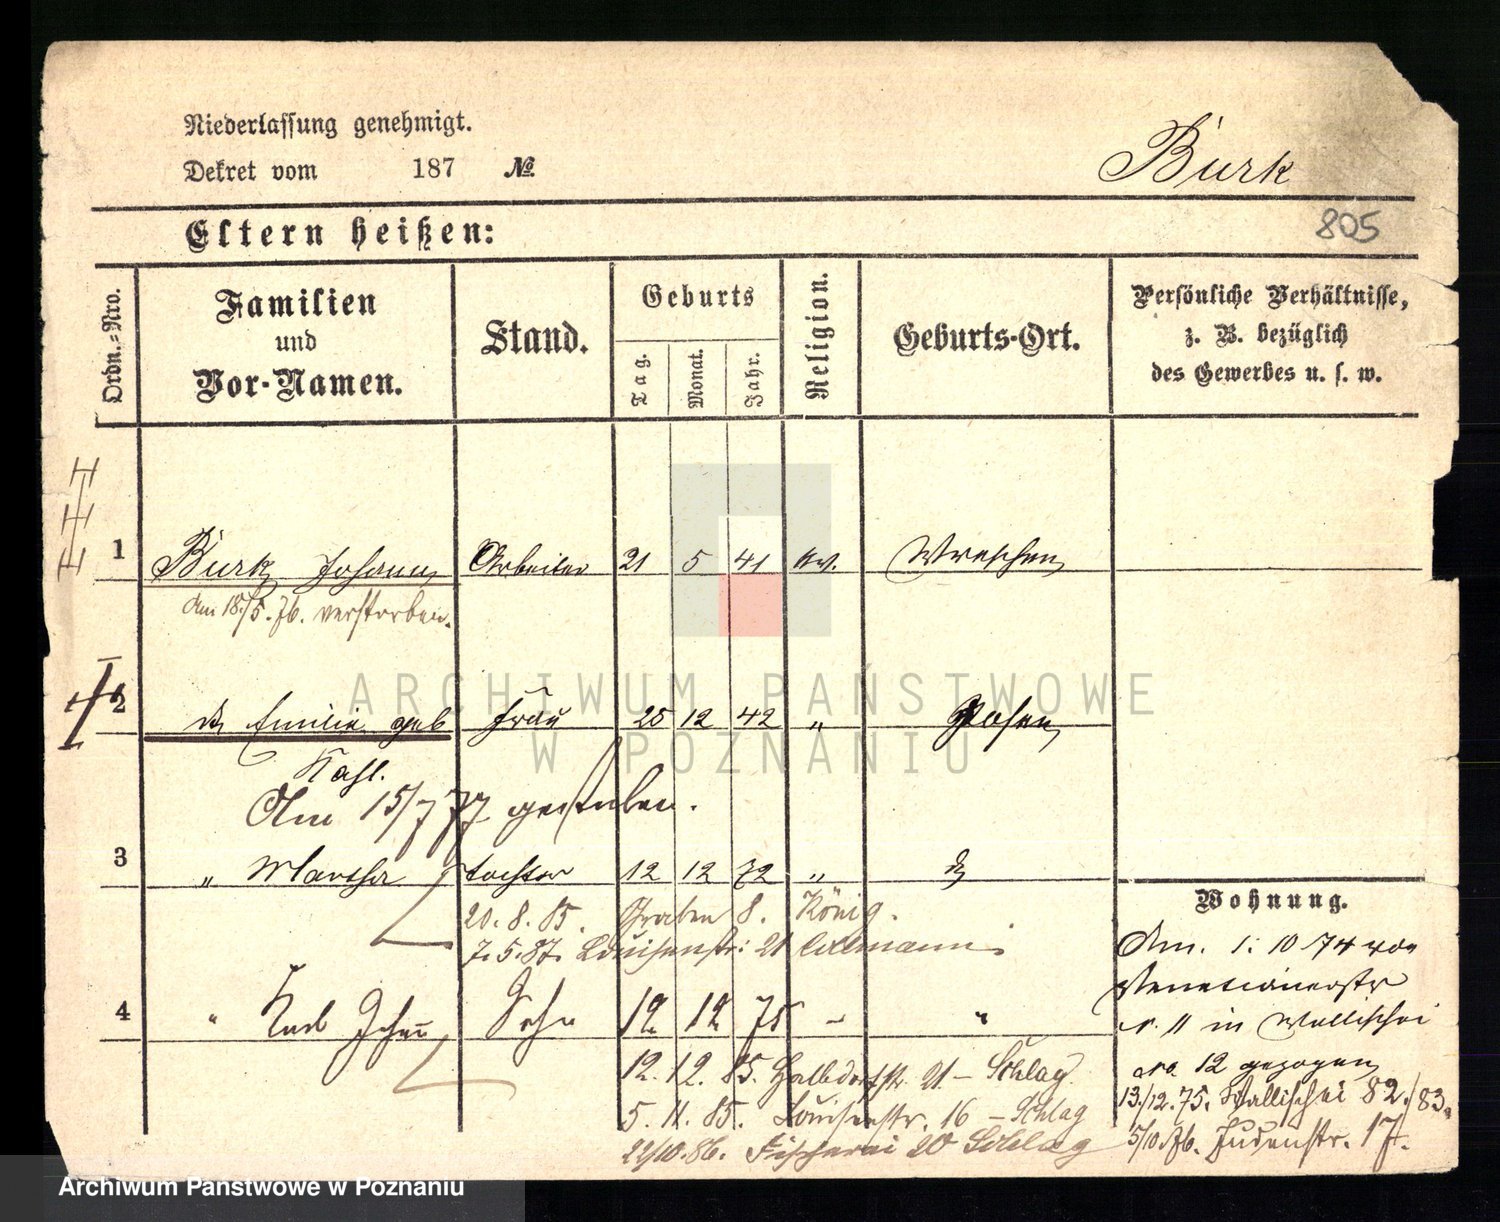 Niederlassung genehmigt.
Dekret vom 187 №
Burk
805
Eltern heißen:
Ordn.=Nro.
Familien
und
Vor-Namen.
Stand.
Geburts
Tag.
Monat.
Jahr.
Religion.
Geburts-Ort.
Persönliche Verhältnisse,
z. B. bezüglich
des Gewerbes u. s. w.
1 Burk Johann Arbeiter 21 5 41 ev. Wreschen
Am 18/5. 76. verstorben.
2 Emilie geb Frau 25 12 42 " Posen
Kahl.
Am 15/7 77 gestorben.
3 " Martha Tochter 12 12 72 "
20. 8. 85. Graben 8. König.
7. 5. 87. Louisenstr: 21
4 " Karl Johann Sohn 12 12 75 – "
12. 12. 85. Halbdorfstr. 21 – Schlag
5. 11. 85. Louisenstr. 16 – Schlag
22/10. 86. Fischerei 20 Schlag
Wohnung.
Am. 1. 10 74 von
Venetianerstr
No. 11 in Wallischei
No. 12 gezogen
13./12. 75. Wallischei 82./83.
5/10. 76. Judenstr. 17.
ARCHIWUM PAŃSTWOWE
W POZNANIU
Archiwum Państwowe w Poznaniu